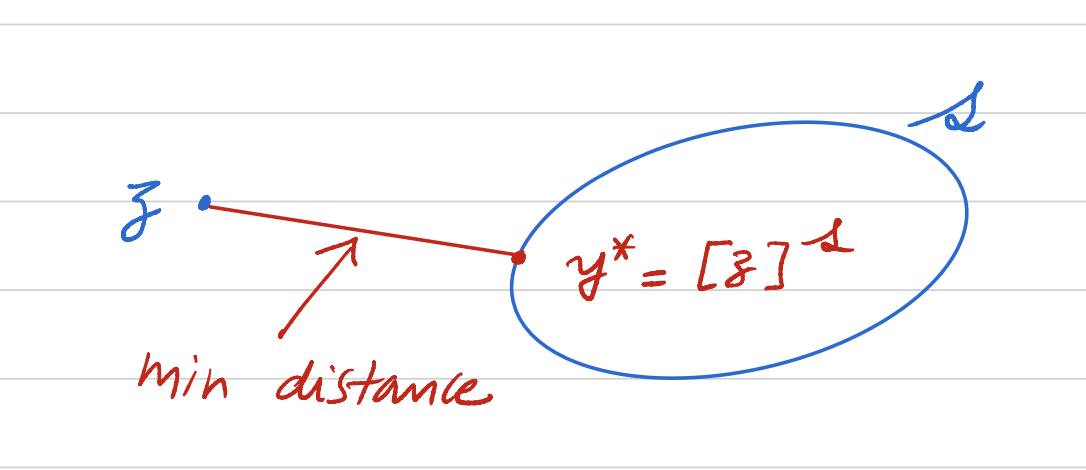 S
z
y* = [z]^S
min distance